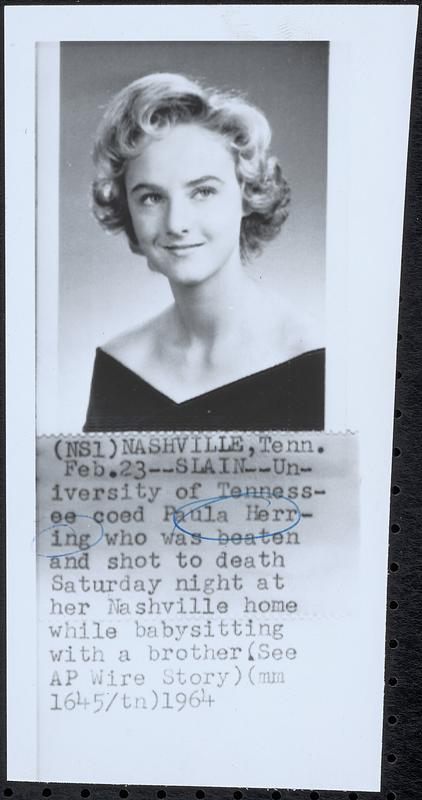 (NS1)NASHVILLE,Tenn.
Feb.23--SLAIN--Un-
iversity of Tenness-
ee coed Paula Herr-
ing who was beaten
and shot to death
Saturday night at
her Nashville home
while babysitting
with a brother(See
AP Wire Story)(mm
1645/tn)1964